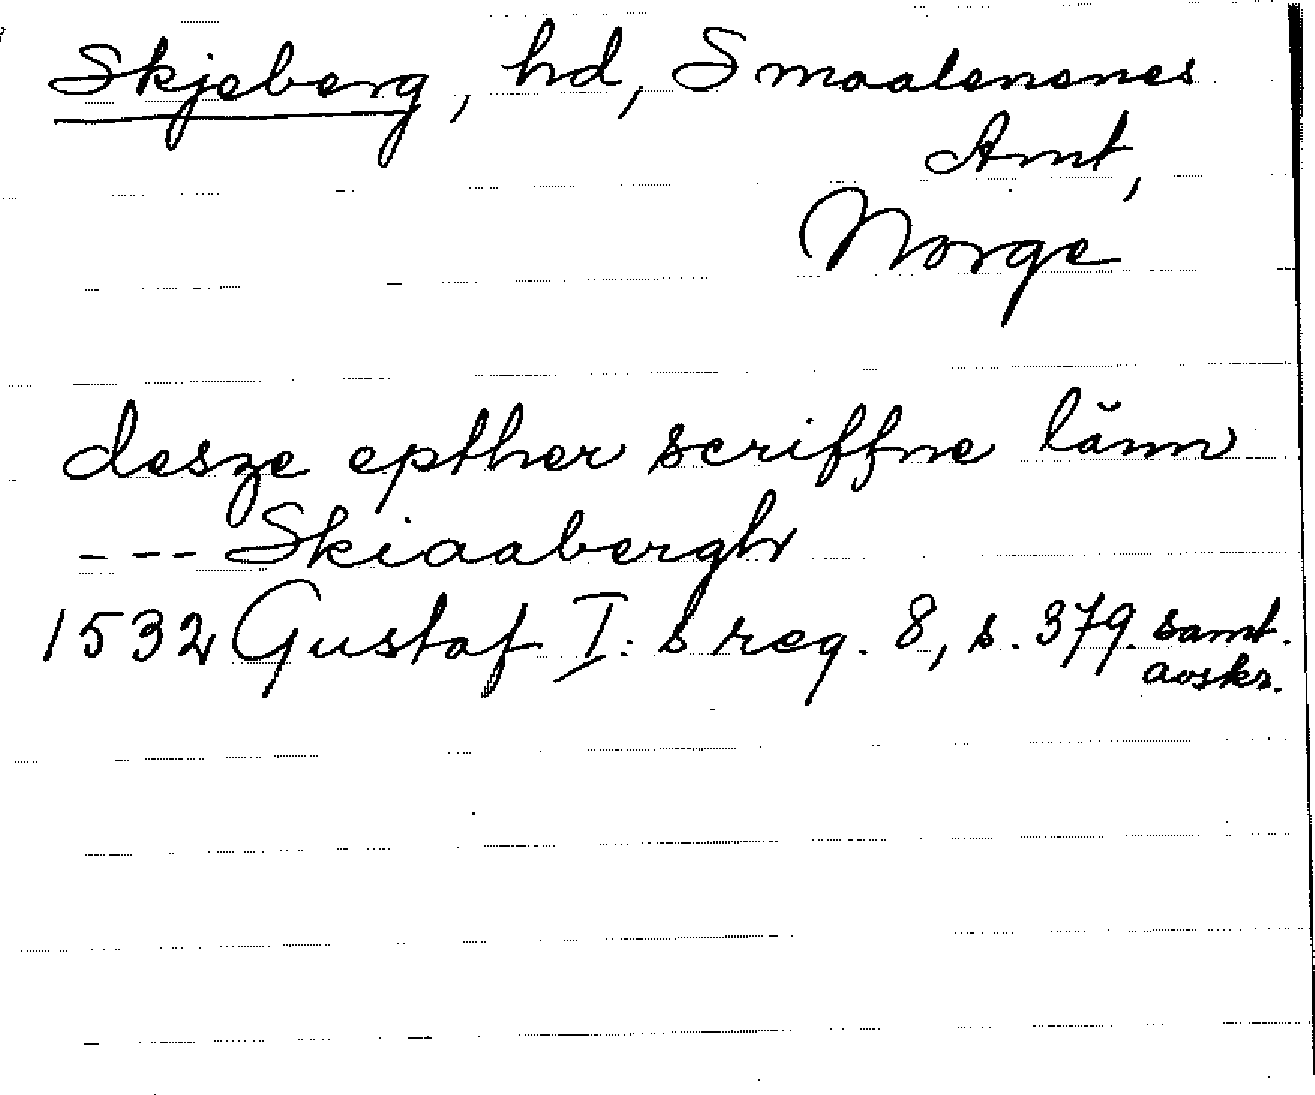 Skjeberg, hd, Smaalenenes
Amt,
Norge
desze epther scriffne län
--- Skiaabergh
1532 Gustaf I:s reg. 8, s. 379. samt.
avskr.